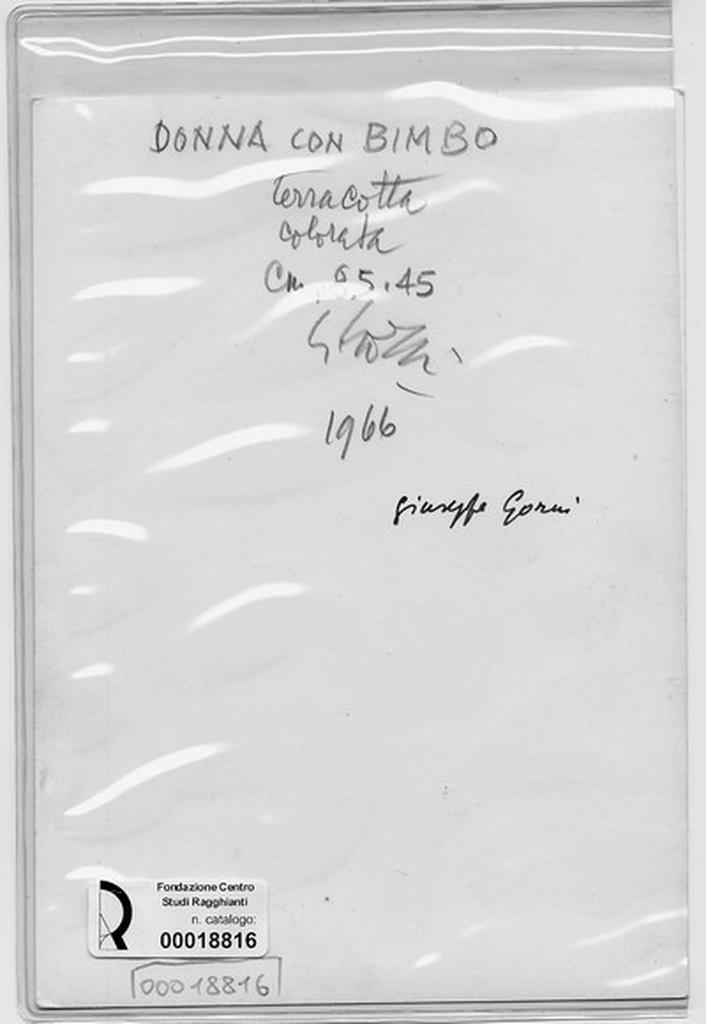 DONNA CON BIMBO
terracotta
colorata
Cm. 45
1966
Giuseppe Gorni
Fondazione Centro
Studi Ragghianti
n. catalogo:
00018816
00018816